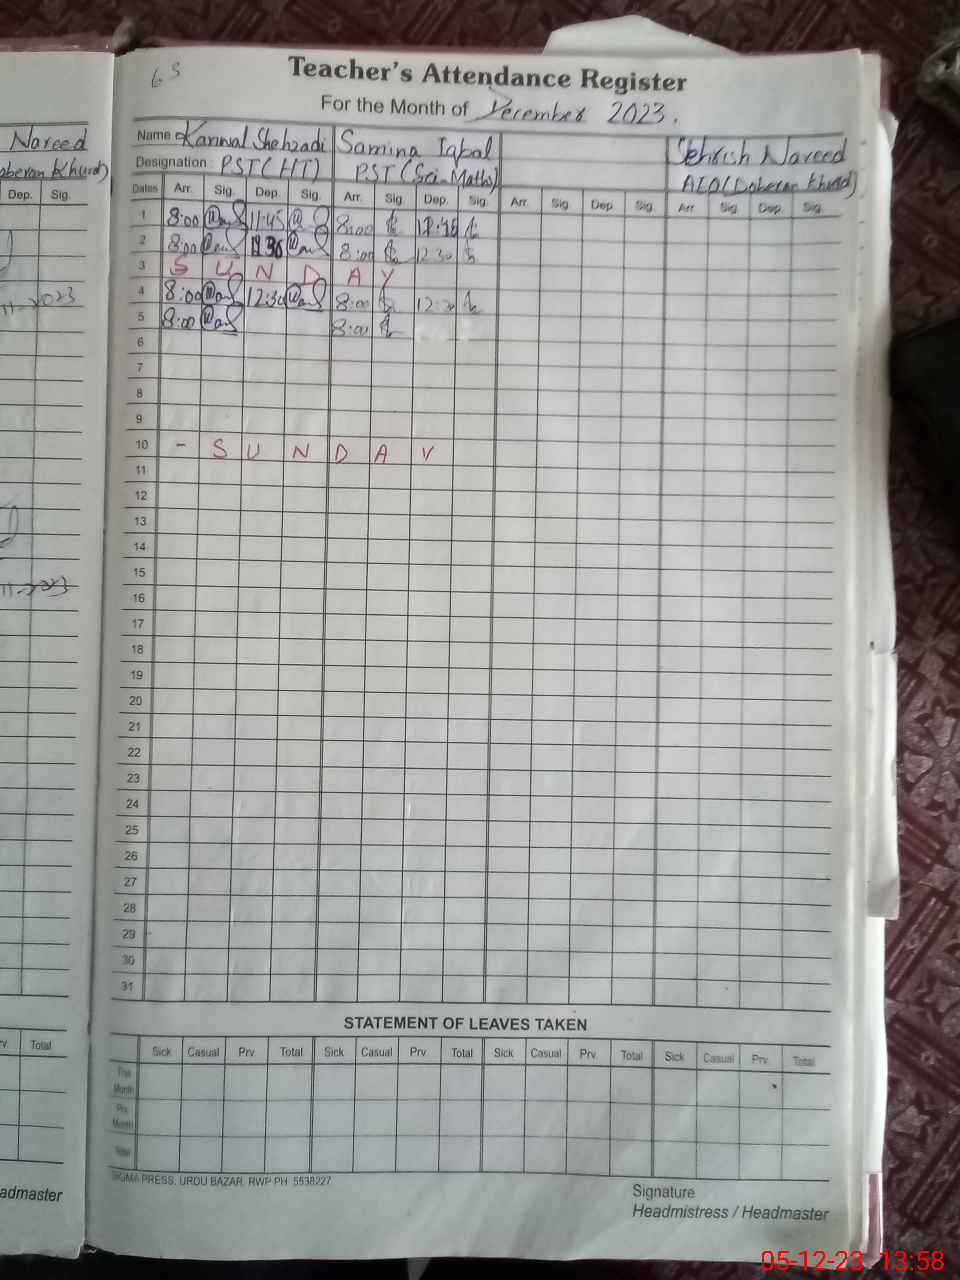 Naveed
Dep. Sig.
11-2023
11-2023
Prv. Total
Headmaster
63
Teacher's Attendance Register
For the Month of December 2023.
Name Kanwal Shehzadi Samina Iqbal Sehrish Naveed
Designation PST(HT) PST(Sci-Math) AEO(Doberan Khurd)
Dates Arr. Sig. Dep. Sig. Arr. Sig. Dep. Sig. Arr. Sig Dep. Sig. Arr. Sig. Dep. Sig.
1 8:00 11:45 8:00
2 8:00 12:30 8:00 12:30
3 S U N D A Y
4 8:00 12:30 8:00 12:30
5 8:00 8:00
6
7
8
9
10 - S U N D A Y
11
12
13
14
15
16
17
18
19
20
21
22
23
24
25
26
27
28
29
30
31
STATEMENT OF LEAVES TAKEN
Sick Casual Prv. Total Sick Casual Prv. Total Sick Casual Prv. Total Sick Casual Prv. Total
This Month
Prv. Month
Total
SIGMA PRESS, URDU BAZAR, RWP PH 5538227
Signature
Headmistress / Headmaster
05-12-23 13:58